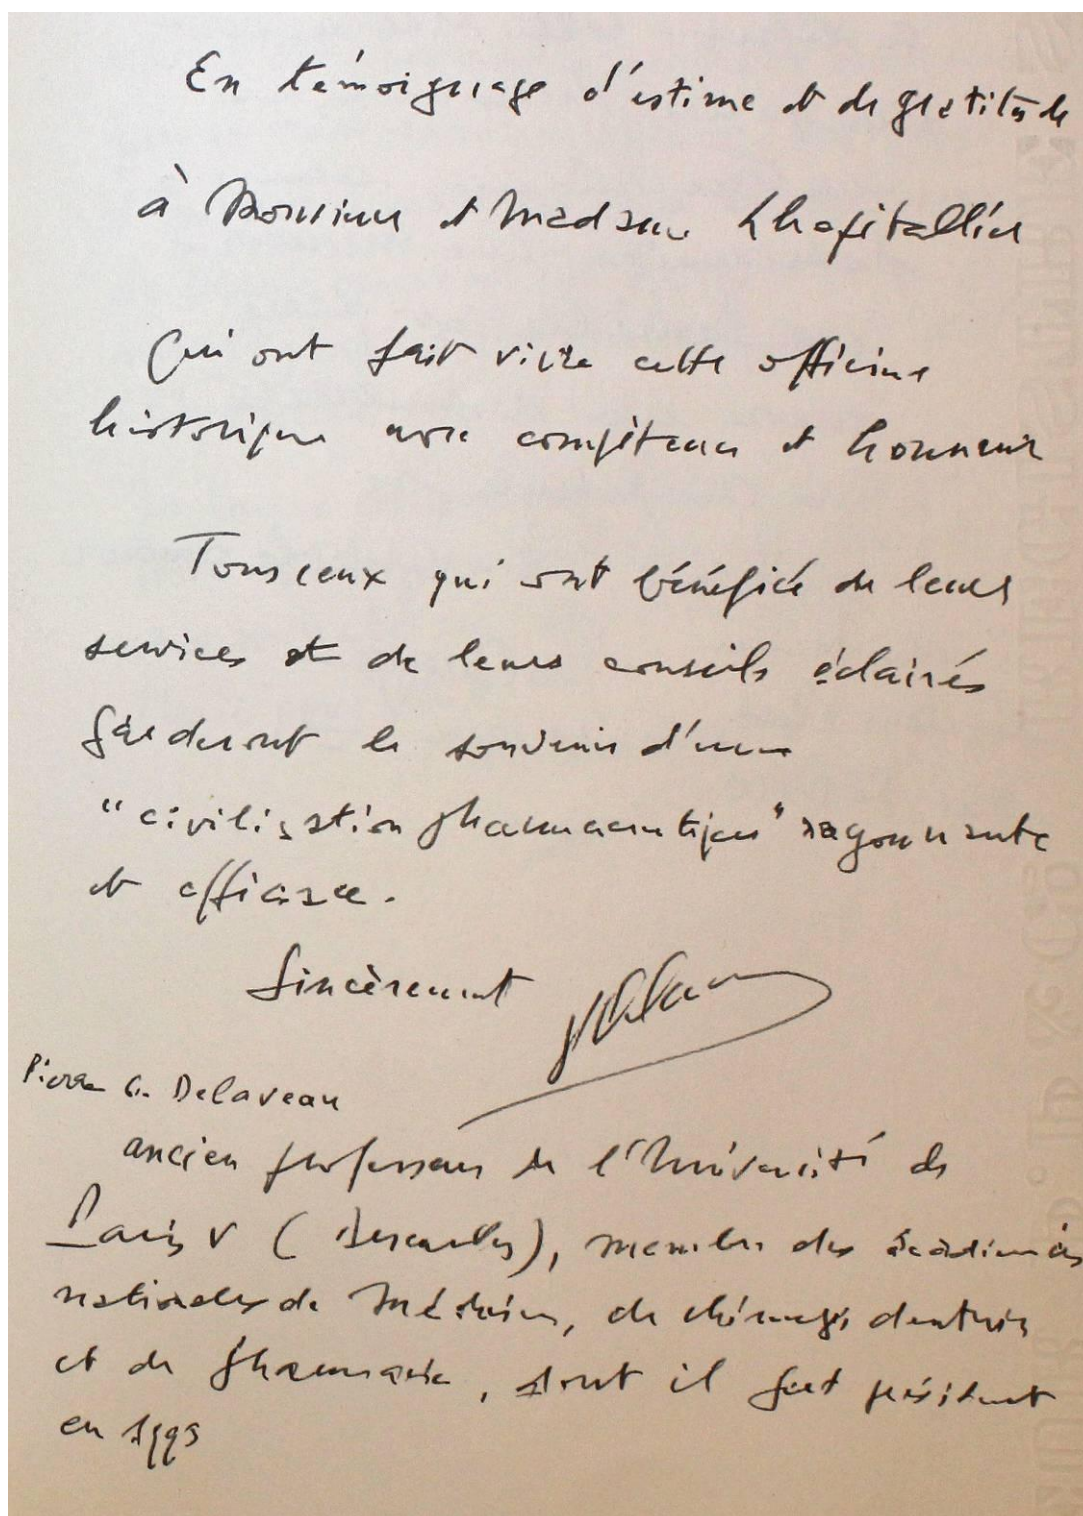 En témoignage d'estime et de gratitude
à Monsieur et Madame Lhopitallier
Qui ont fait vivre cette officine
historique avec compétence et honneur
Tous ceux qui ont bénéficié de leurs
services et de leurs conseils éclairés
garderont le souvenir d'une
"civilisation pharmaceutique" rayonnante
et efficace.
Sincèrement
Pierre G. Delaveau
ancien professeur de l'Université de
Paris V (Descartes), membre des académies
nationales de Médecine, de chirurgie dentaire
et de pharmacie, dont il fut président
en